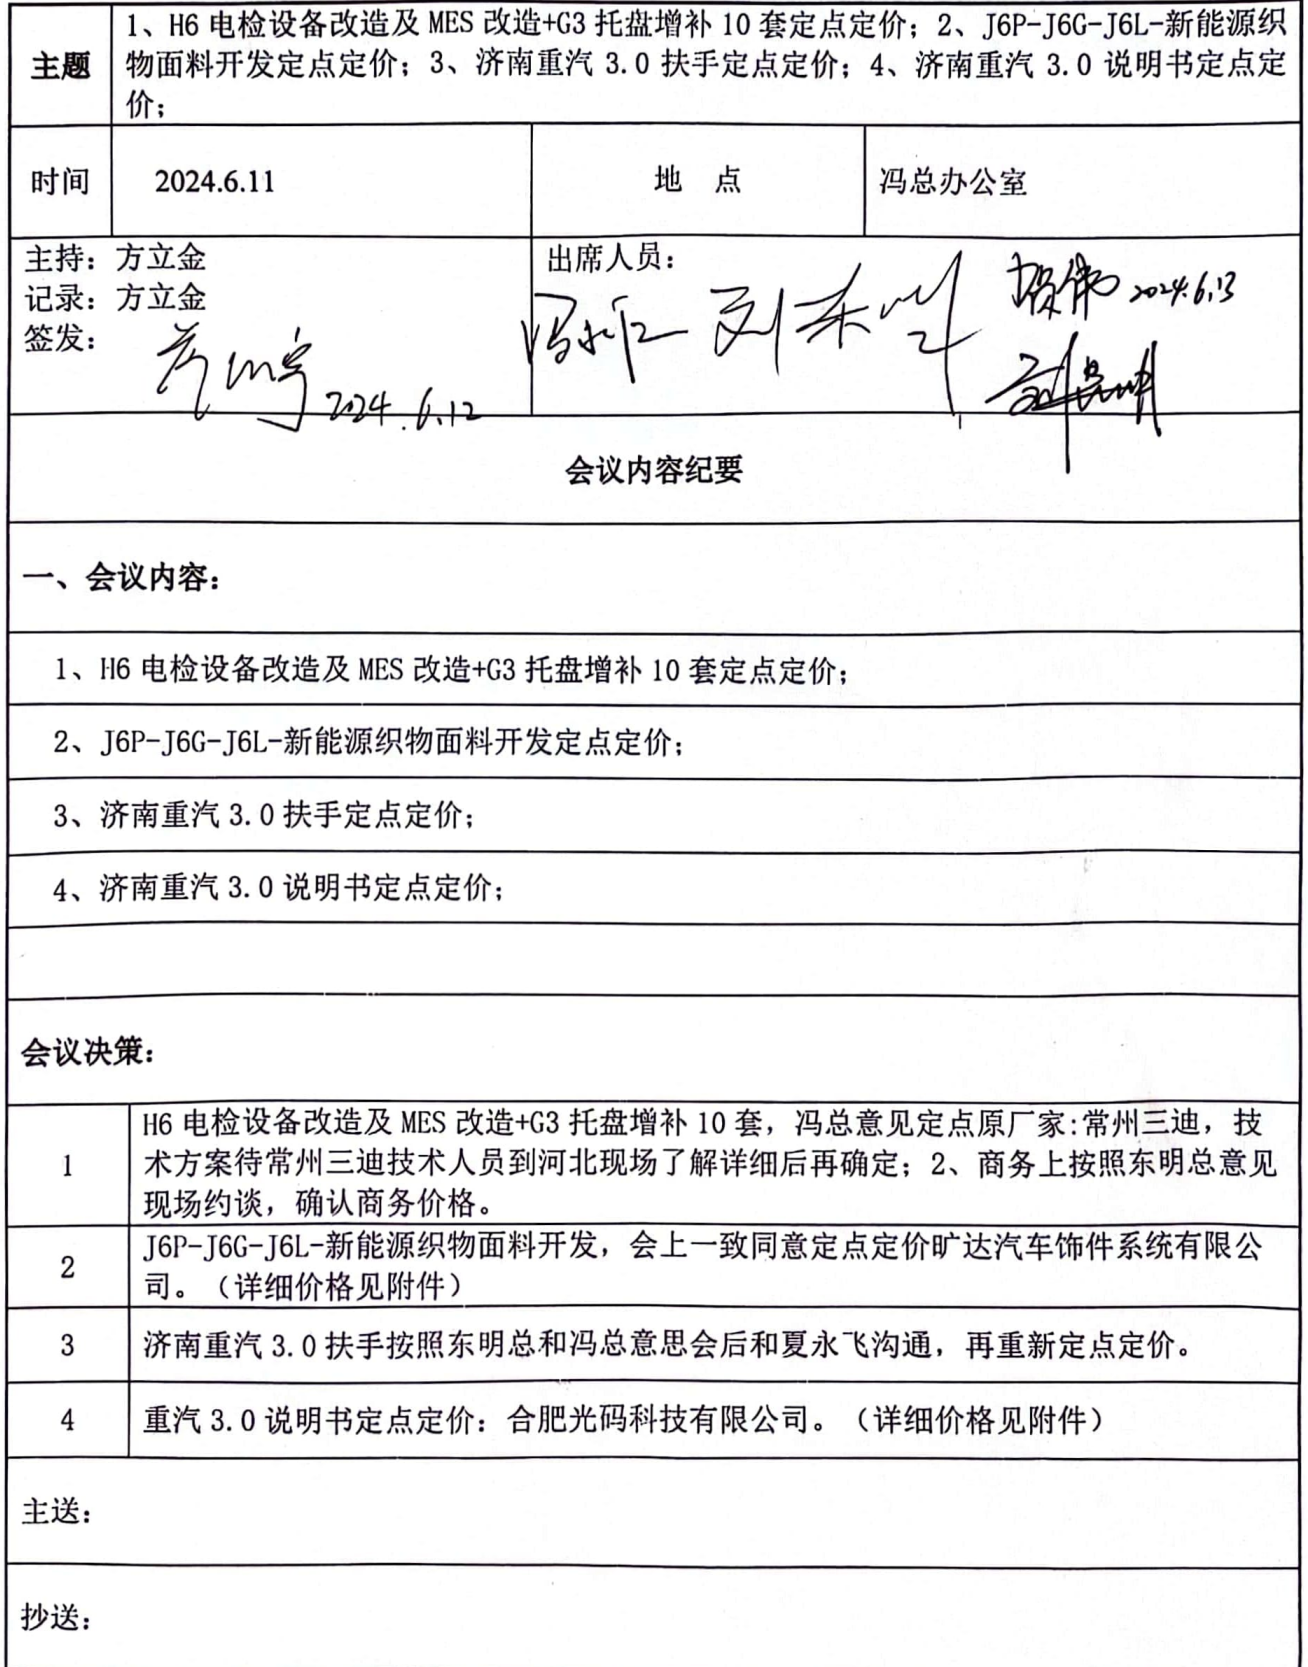 主题
1、H6 电检设备改造及 MES 改造+G3 托盘增补 10 套定点定价；2、J6P-J6G-J6L-新能源织
物面料开发定点定价；3、济南重汽 3.0 扶手定点定价；4、济南重汽 3.0 说明书定点定
价；
时间 2024.6.11 地 点 冯总办公室
主持：方立金
记录：方立金
签发：
2024.6.12
出席人员：
2024.6.13
会议内容纪要
一、会议内容：
1、H6 电检设备改造及 MES 改造+G3 托盘增补 10 套定点定价；
2、J6P-J6G-J6L-新能源织物面料开发定点定价；
3、济南重汽 3.0 扶手定点定价；
4、济南重汽 3.0 说明书定点定价；
会议决策：
1
H6 电检设备改造及 MES 改造+G3 托盘增补 10 套，冯总意见定点原厂家:常州三迪，技
术方案待常州三迪技术人员到河北现场了解详细后再确定；2、商务上按照东明总意见
现场约谈，确认商务价格。
2
J6P-J6G-J6L-新能源织物面料开发，会上一致同意定点定价旷达汽车饰件系统有限公
司。（详细价格见附件）
3 济南重汽 3.0 扶手按照东明总和冯总意思会后和夏永飞沟通，再重新定点定价。
4 重汽 3.0 说明书定点定价：合肥光码科技有限公司。（详细价格见附件）
主送：
抄送：